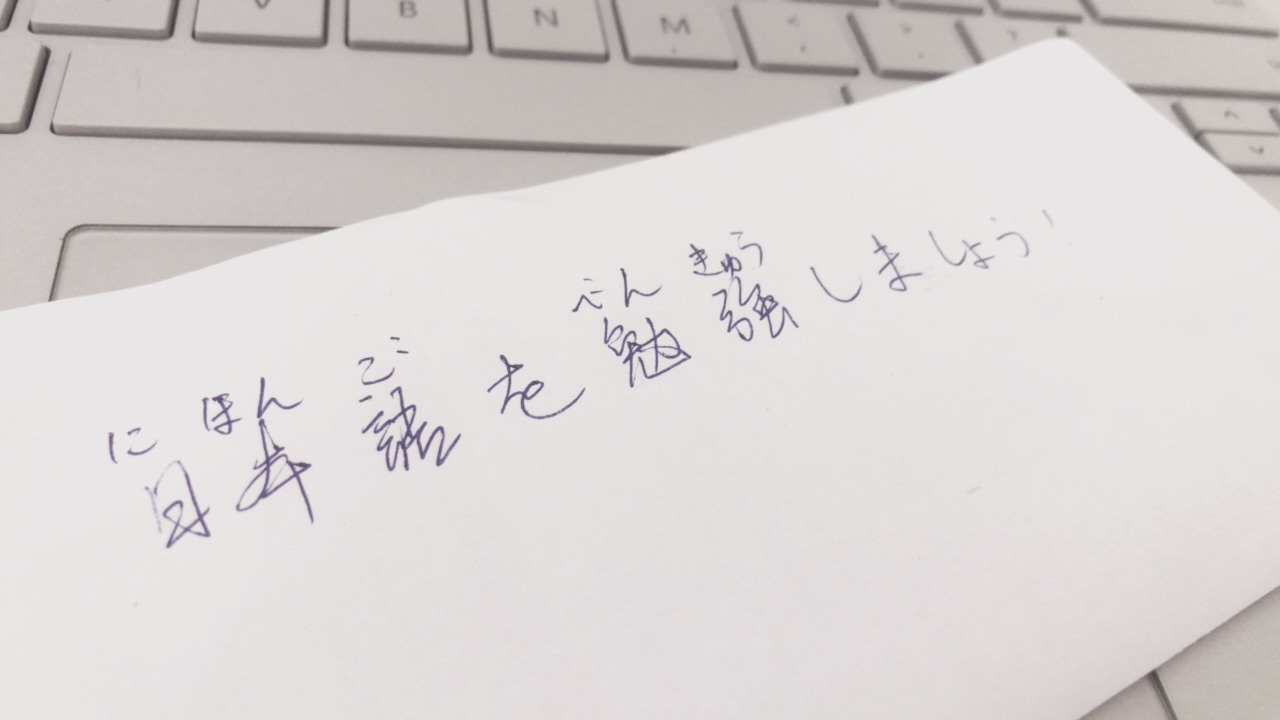 V B N M
にほん ご べん きゅう
日本語を勉強しましょう!